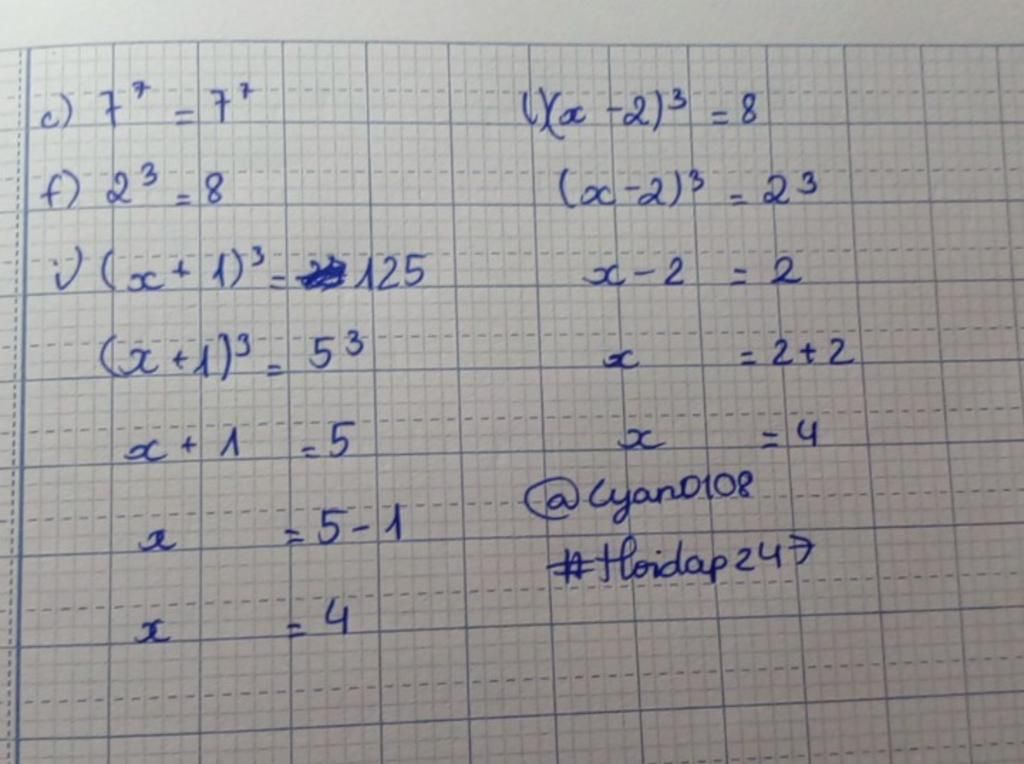 c) 7⁷ = 7⁷
f) 2³ = 8
i) (x + 1)³ = 125
(x + 1)³ = 5³
x + 1 = 5
x = 5 - 1
x = 4
l) (x - 2)³ = 8
(x - 2)³ = 2³
x - 2 = 2
x = 2 + 2
x = 4
@Cyan0108
#Hoidap247